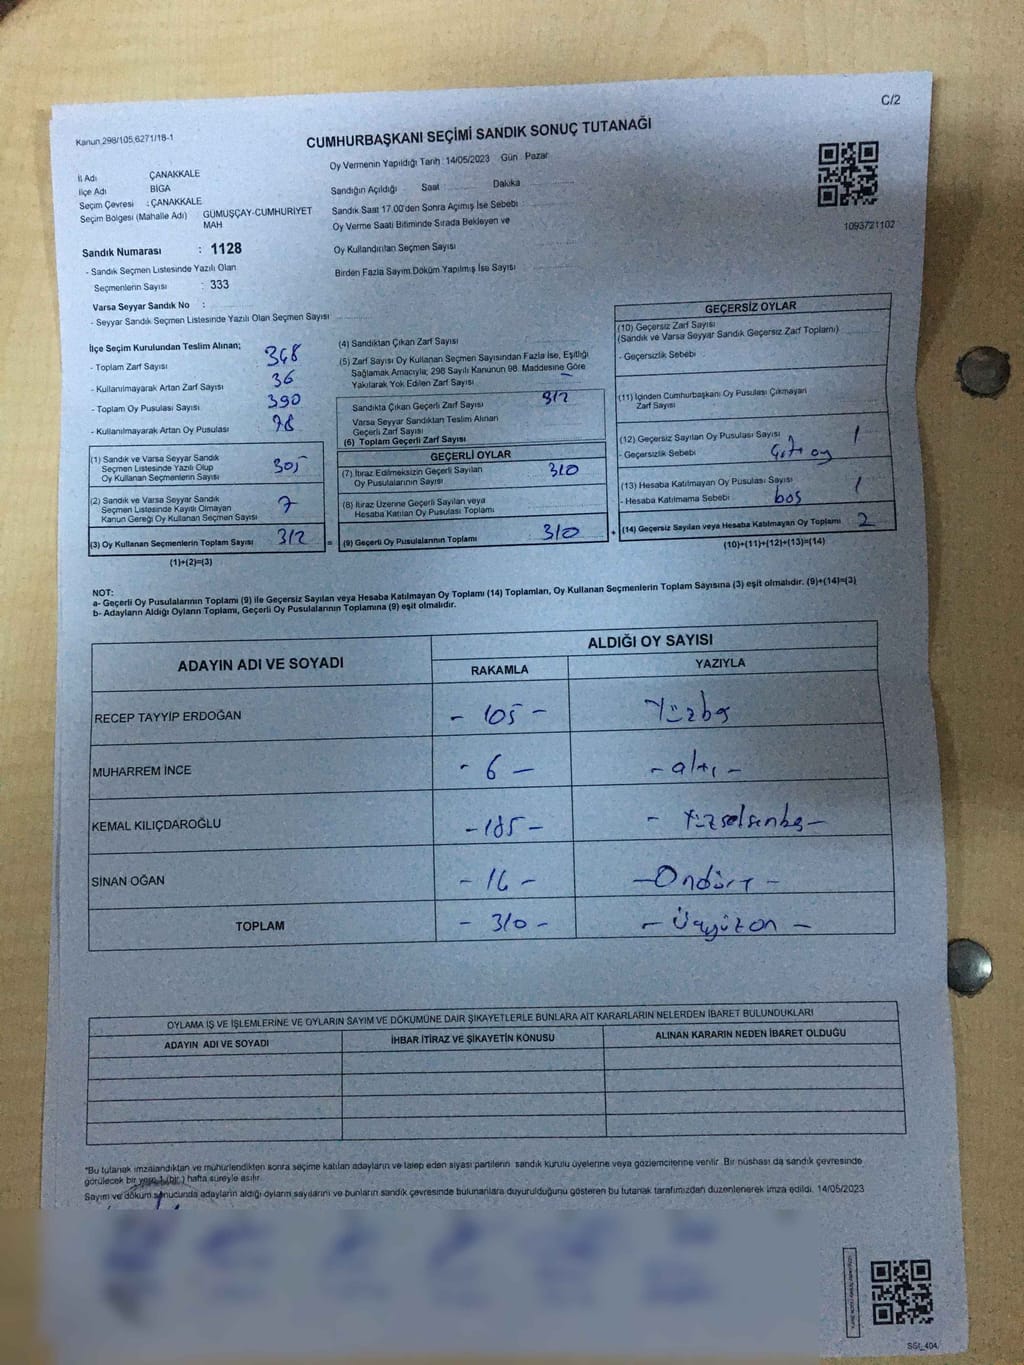 C/2
Kanun 298/105,6271/18-1
CUMHURBAŞKANI SEÇİMİ SANDIK SONUÇ TUTANAĞI
İl Adı ÇANAKKALE
İlçe Adı BİGA
Seçim Çevresi : ÇANAKKALE
Seçim Bölgesi (Mahalle Adı) GÜMÜŞÇAY-CUMHURİYET MAH
Sandık Numarası : 1128
- Sandık Seçmen Listesinde Yazılı Olan
Seçmenlerin Sayısı : 333
Varsa Seyyar Sandık No :
- Seyyar Sandık Seçmen Listesinde Yazılı Olan Seçmen Sayısı
Oy Vermenin Yapıldığı Tarih : 14/05/2023 Gün : Pazar
Sandığın Açıldığı Saat Dakika
Sandık Saat 17.00'den Sonra Açılmış İse Sebebi
Oy Verme Saati Bitiminde Sırada Bekleyen ve
Oy Kullandırılan Seçmen Sayısı
Birden Fazla Sayım Döküm Yapılmış İse Sayısı
1093721102
İlçe Seçim Kurulundan Teslim Alınan;
- Toplam Zarf Sayısı 348
- Kullanılmayarak Artan Zarf Sayısı 36
- Toplam Oy Pusulası Sayısı 390
- Kullanılmayarak Artan Oy Pusulası 78
(1) Sandık ve Varsa Seyyar Sandık
Seçmen Listesinde Yazılı Olup
Oy Kullanan Seçmenlerin Sayısı 305
(2) Sandık ve Varsa Seyyar Sandık
Seçmen Listesinde Kayıtlı Olmayan
Kanun Gereği Oy Kullanan Seçmen Sayısı 7
(3) Oy Kullanan Seçmenlerin Toplam Sayısı 312 =
(1)+(2)=(3)
(4) Sandıktan Çıkan Zarf Sayısı
(5) Zarf Sayısı Oy Kullanan Seçmen Sayısından Fazla İse, Eşitliği
Sağlamak Amacıyla; 298 Sayılı Kanunun 98. Maddesine Göre
Yakılarak Yok Edilen Zarf Sayısı –
Sandıkta Çıkan Geçerli Zarf Sayısı 312
Varsa Seyyar Sandıktan Teslim Alınan
Geçerli Zarf Sayısı
(6) Toplam Geçerli Zarf Sayısı
GEÇERLİ OYLAR
(7) İtiraz Edilmeksizin Geçerli Sayılan
Oy Pusulalarının Sayısı 310
(8) İtiraz Üzerine Geçerli Sayılan veya
Hesaba Katılan Oy Pusulası Toplamı
(9) Geçerli Oy Pusulalarının Toplamı 310 +
GEÇERSİZ OYLAR
(10) Geçersiz Zarf Sayısı
(Sandık ve Varsa Seyyar Sandık Geçersiz Zarf Toplamı)
- Geçersizlik Sebebi
(11) İçinden Cumhurbaşkanı Oy Pusulası Çıkmayan
Zarf Sayısı
(12) Geçersiz Sayılan Oy Pusulası Sayısı 1
- Geçersizlik Sebebi Çift oy
(13) Hesaba Katılmayan Oy Pusulası Sayısı 1
- Hesaba Katılmama Sebebi boş
(14) Geçersiz Sayılan veya Hesaba Katılmayan Oy Toplamı 2
(10)+(11)+(12)+(13)=(14)
NOT:
a- Geçerli Oy Pusulalarının Toplamı (9) ile Geçersiz Sayılan veya Hesaba Katılmayan Oy Toplamı (14) Toplamları, Oy Kullanan Seçmenlerin Toplam Sayısına (3) eşit olmalıdır. (9)+(14)=(3)
b- Adayların Aldığı Oyların Toplamı, Geçerli Oy Pusulalarının Toplamına (9) eşit olmalıdır.
ADAYIN ADI VE SOYADI ALDIĞI OY SAYISI
RAKAMLA YAZIYLA
RECEP TAYYİP ERDOĞAN - 105 - Yüzbeş
MUHARREM İNCE - 6 - - altı -
KEMAL KILIÇDAROĞLU - 185 - - Yüzseksenbeş -
SİNAN OĞAN - 14 - - Ondört -
TOPLAM - 310 - - Üçyüzon -
OYLAMA İŞ VE İŞLEMLERİNE VE OYLARIN SAYIM VE DÖKÜMÜNE DAİR ŞİKAYETLERLE BUNLARA AİT KARARLARIN NELERDEN İBARET BULUNDUKLARI
ADAYIN ADI VE SOYADI İHBAR İTİRAZ VE ŞİKAYETİN KONUSU ALINAN KARARIN NEDEN İBARET OLDUĞU
*Bu tutanak imzalandıktan ve mühürlendikten sonra seçime katılan adayların ve talep eden siyasi partilerin sandık kurulu üyelerine veya gözlemcilerine verilir. Bir nüshası da sandık çevresinde
görülecek bir yere 1 (bir) hafta süreyle asılır.
Sayım ve döküm sonucunda adayların aldığı oyların sayılarını ve bunların sandık çevresinde bulunanlara duyurulduğunu gösteren bu tutanak tarafımızdan düzenlenerek imza edildi. 14/05/2023